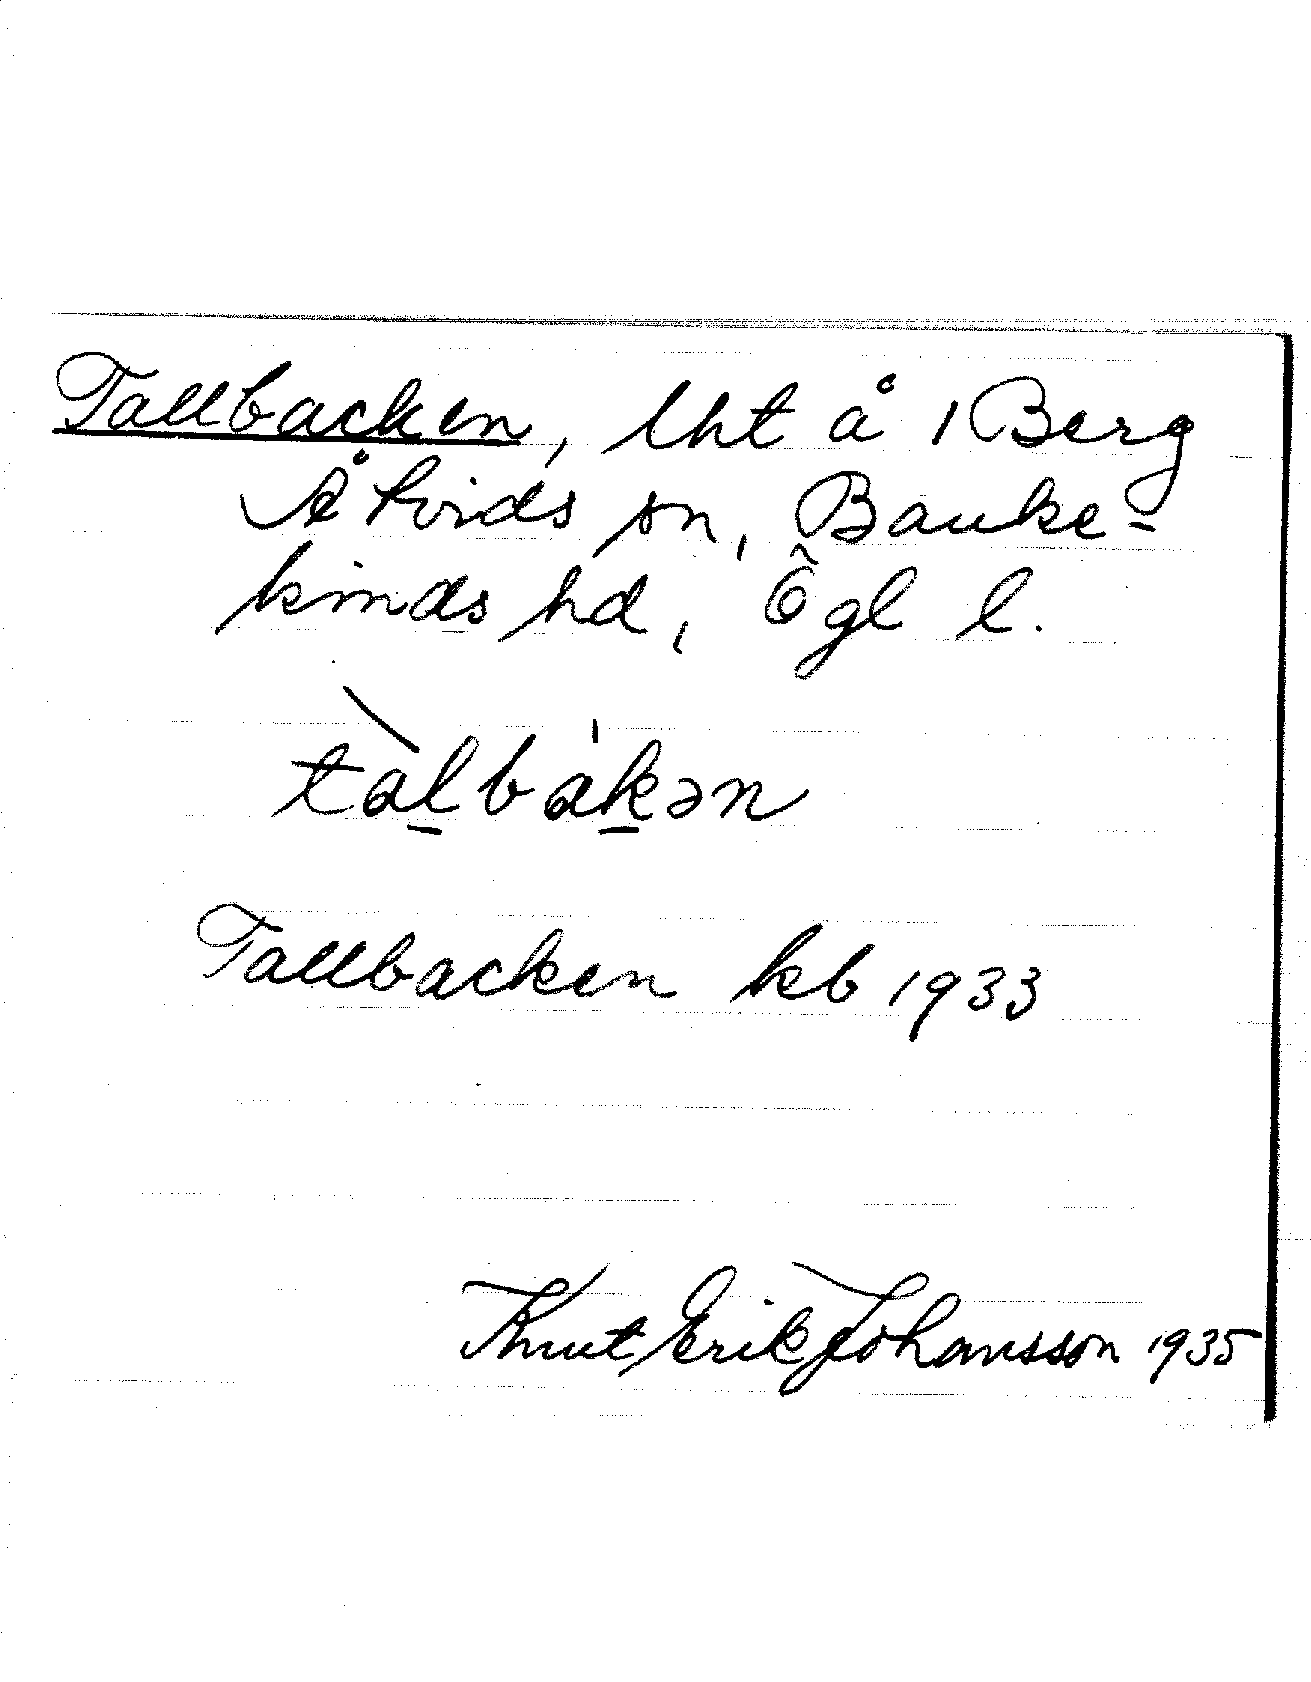 Tallbacken, lht å 1 Berg
Åtvids sn, Banke-
kinds hd, Ögl l.
tàl̠bak̠ən
Tallbacken kb 1933
Knut Erik Johansson 1935